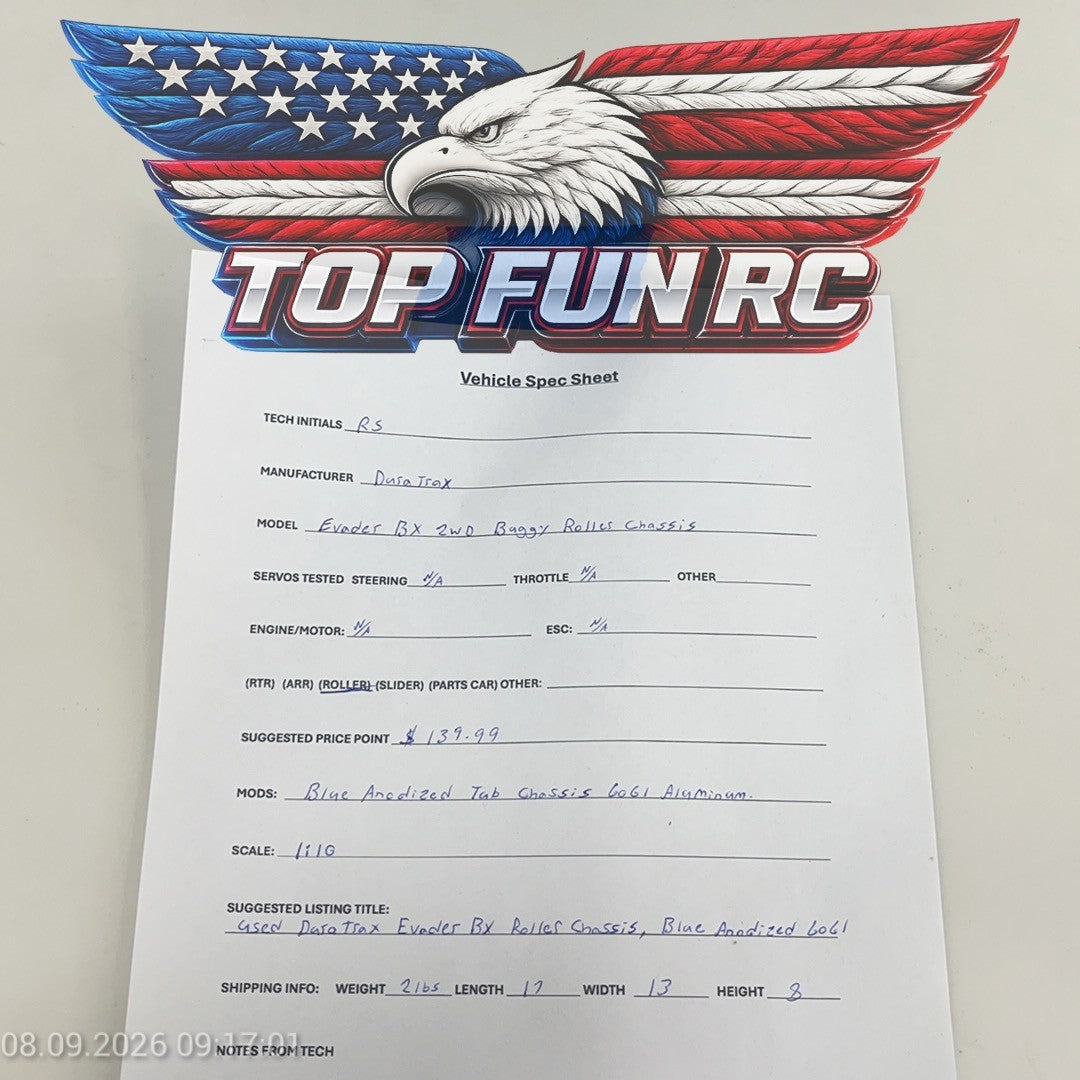 TOP FUN RC
Vehicle Spec Sheet
TECH INITIALS RS
MANUFACTURER DuraTrax
MODEL Evader BX 2WD Buggy Roller Chassis
SERVOS TESTED STEERING N/A THROTTLE N/A OTHER
ENGINE/MOTOR: N/A ESC: N/A
(RTR) (ARR) (ROLLER) (SLIDER) (PARTS CAR) OTHER:
SUGGESTED PRICE POINT $139.99
MODS: Blue Anodized Tub Chassis 6061 Aluminum.
SCALE: 1:10
SUGGESTED LISTING TITLE:
Used DuraTrax Evader BX Roller Chassis, Blue Anodized 6061
SHIPPING INFO: WEIGHT 2lbs LENGTH 17 WIDTH 13 HEIGHT 8
08.09.2026 09:17:01
NOTES FROM TECH